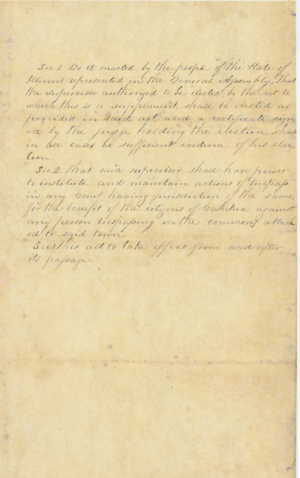 Sec 1 Be it enacted by the people of the State of
Illinois represented in the General Assembly, That
the supervisor authorized to be elected by the act to
which this is a supplement shall be elected as
provided in said act and a certificate sign
ed by the judges holding the election shall
in all cases be sufficient evidence of his elec
tion
Sec 2 That said supervisor shall have power
to institute and maintain actions of trespass
in any court having jurisdiction of the same,
for the benefit of the citizens of Cahokia against
any person trespassing on the commons attach
ed to said town.
Sec 3 This act to take effect from and after
its passage.